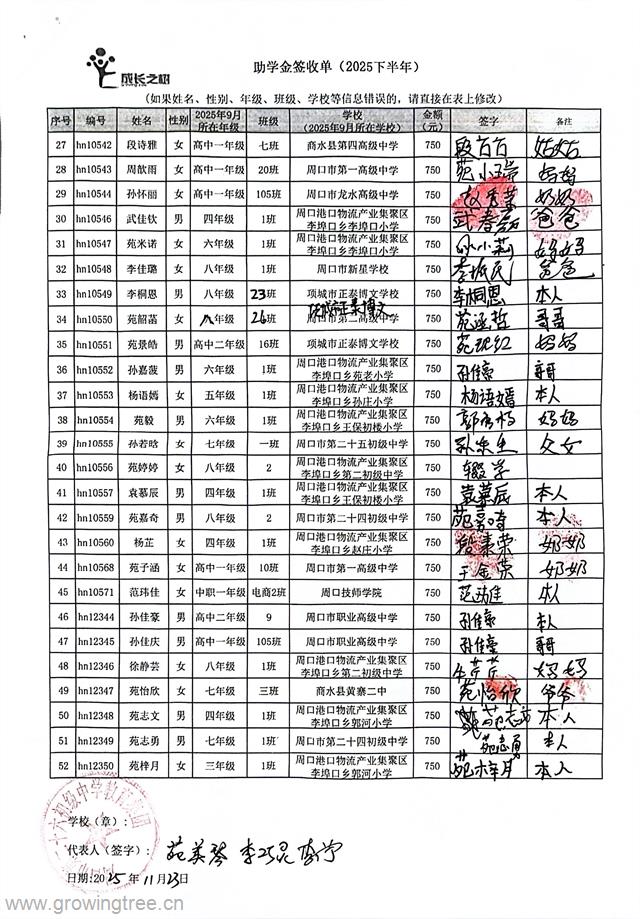 成长之树
助学金签收单（2025下半年）
（如果姓名、性别、年级、班级、学校等信息错误的，请直接在表上修改）
序号 编号 姓名 性别 2025年9月所在年级 班级 学校（2025年9月所在学校） 金额（元） 签字 备注
27 hn10542 段诗雅 女 高中一年级 七班 商水县第四高级中学 750 姑姑
28 hn10543 周歆雨 女 高中一年级 20班 周口市第一高级中学 750 苑小瑞 妈妈
29 hn10544 孙怀丽 女 高中一年级 105班 周口市龙水高级中学 750 奶奶
30 hn10546 武佳钦 男 四年级 1班 周口港口物流产业集聚区李埠口乡李埠口小学 750 武春磊 爸爸
31 hn10547 苑米诺 女 六年级 1班 周口港口物流产业集聚区李埠口乡李埠口小学 750 妈妈
32 hn10548 李佳璐 女 八年级 1班 周口市新星学校 750 李振民 爸爸
33 hn10549 李桐恩 男 八年级 23班 项城市正泰博文学校 750 李桐恩 本人
34 hn10550 苑韶菡 女 八年级 26班 周口市第二高级中学 项城市正泰博文 750 哥哥
35 hn10551 苑景皓 男 高中二年级 16班 项城市正泰博文学校 750 妈妈
36 hn10552 孙嘉菠 男 六年级 1班 周口港口物流产业集聚区李埠口乡苑老小学 750 孙佳豪 哥哥
37 hn10553 杨语嫣 女 五年级 1班 周口港口物流产业集聚区李埠口乡孙庄小学 750 杨语嫣 本人
38 hn10554 苑毅 男 六年级 1班 周口港口物流产业集聚区李埠口乡王保初楼小学 750 妈妈
39 hn10555 孙若晗 女 七年级 一班 周口市第二十五初级中学 750 父女
40 hn10556 苑婷婷 女 八年级 2 周口港口物流产业集聚区李埠口乡第二初级中学 750 辍学
41 hn10557 袁慕辰 男 四年级 1班 周口港口物流产业集聚区李埠口乡王保初楼小学 750 袁慕辰 本人
42 hn10559 苑嘉奇 男 八年级 2 周口市第二十四初级中学 750 苑嘉奇 本人
43 hn10560 杨芷 女 四年级 1班 周口港口物流产业集聚区李埠口乡赵庄小学 750 奶奶
44 hn10568 苑子涵 女 高中一年级 10班 周口市第一高级中学 750 于金荣 奶奶
45 hn10571 范玮佳 女 中职一年级 电商2班 周口技师学院 750 本人
46 hn12344 孙佳豪 男 高中二年级 9 周口市职业高级中学 750 孙佳豪 本人
47 hn12345 孙佳庆 男 高中一年级 105班 周口市职业高级中学 750 孙佳豪 哥哥
48 hn12346 徐静芸 女 八年级 1班 周口港口物流产业集聚区李埠口乡第二初级中学 750 妈妈
49 hn12347 苑怡欣 女 七年级 三班 商水县黄寨二中 750 苑怡欣 爷爷
50 hn12348 苑志文 男 四年级 1班 周口港口物流产业集聚区李埠口乡郭河小学 750 苑志文 本人
51 hn12349 苑志勇 男 七年级 1班 周口市第二十四初级中学 750 苑志勇 本人
52 hn12350 苑梓月 女 三年级 1班 周口港口物流产业集聚区李埠口乡郭河小学 750 苑梓月 本人
学校（章）：
代表人（签字）：苑美琴 李巧昆
日期:2025年11月23日
www.growingtree.cn